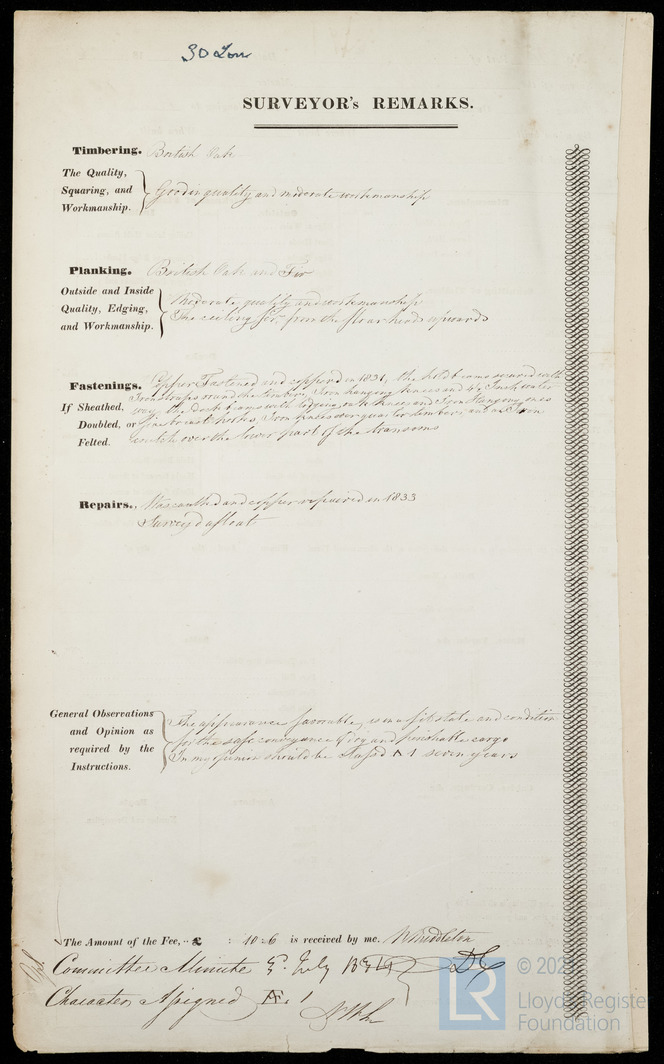 30 Ton
SURVEYOR's REMARKS.
Timbering. British Oak
The Quality,
Squaring, and
Workmanship.
Good in quality and moderate workmanship
Planking. British Oak and Fir
Outside and Inside
Quality, Edging,
and Workmanship.
Moderate quality and workmanship
The ceiling Fir from the floor heads upwards
Fastenings. Copper Fastened and coppered in 1831, the hold beams secured with
If Sheathed,
Doubled, or
Felted.
Iron round the timbers, Iron hanging knees and 4½ Inch water
way, the deck beams with lodging oak knees and Iron Hanging ones
breast hooks, Iron knees over quarter timbers and an Iron
crutch over the lower part of the transoms
Repairs. Was caulked and copper repaired in 1833
Survey'd afloat
General Observations
and Opinion as
required by the
Instructions.
The appearance favorable, is in a fit state and condition
for the safe conveyance of dry and perishable cargo
In my opinion should be Classed A 1 seven years
The Amount of the Fee, .. £ : 10.6 is received by me, W Middleton
Committee Minute 3d. July 1834
Character Assigned A. 1
© 202
LR
Lloyd's Register
Foundation